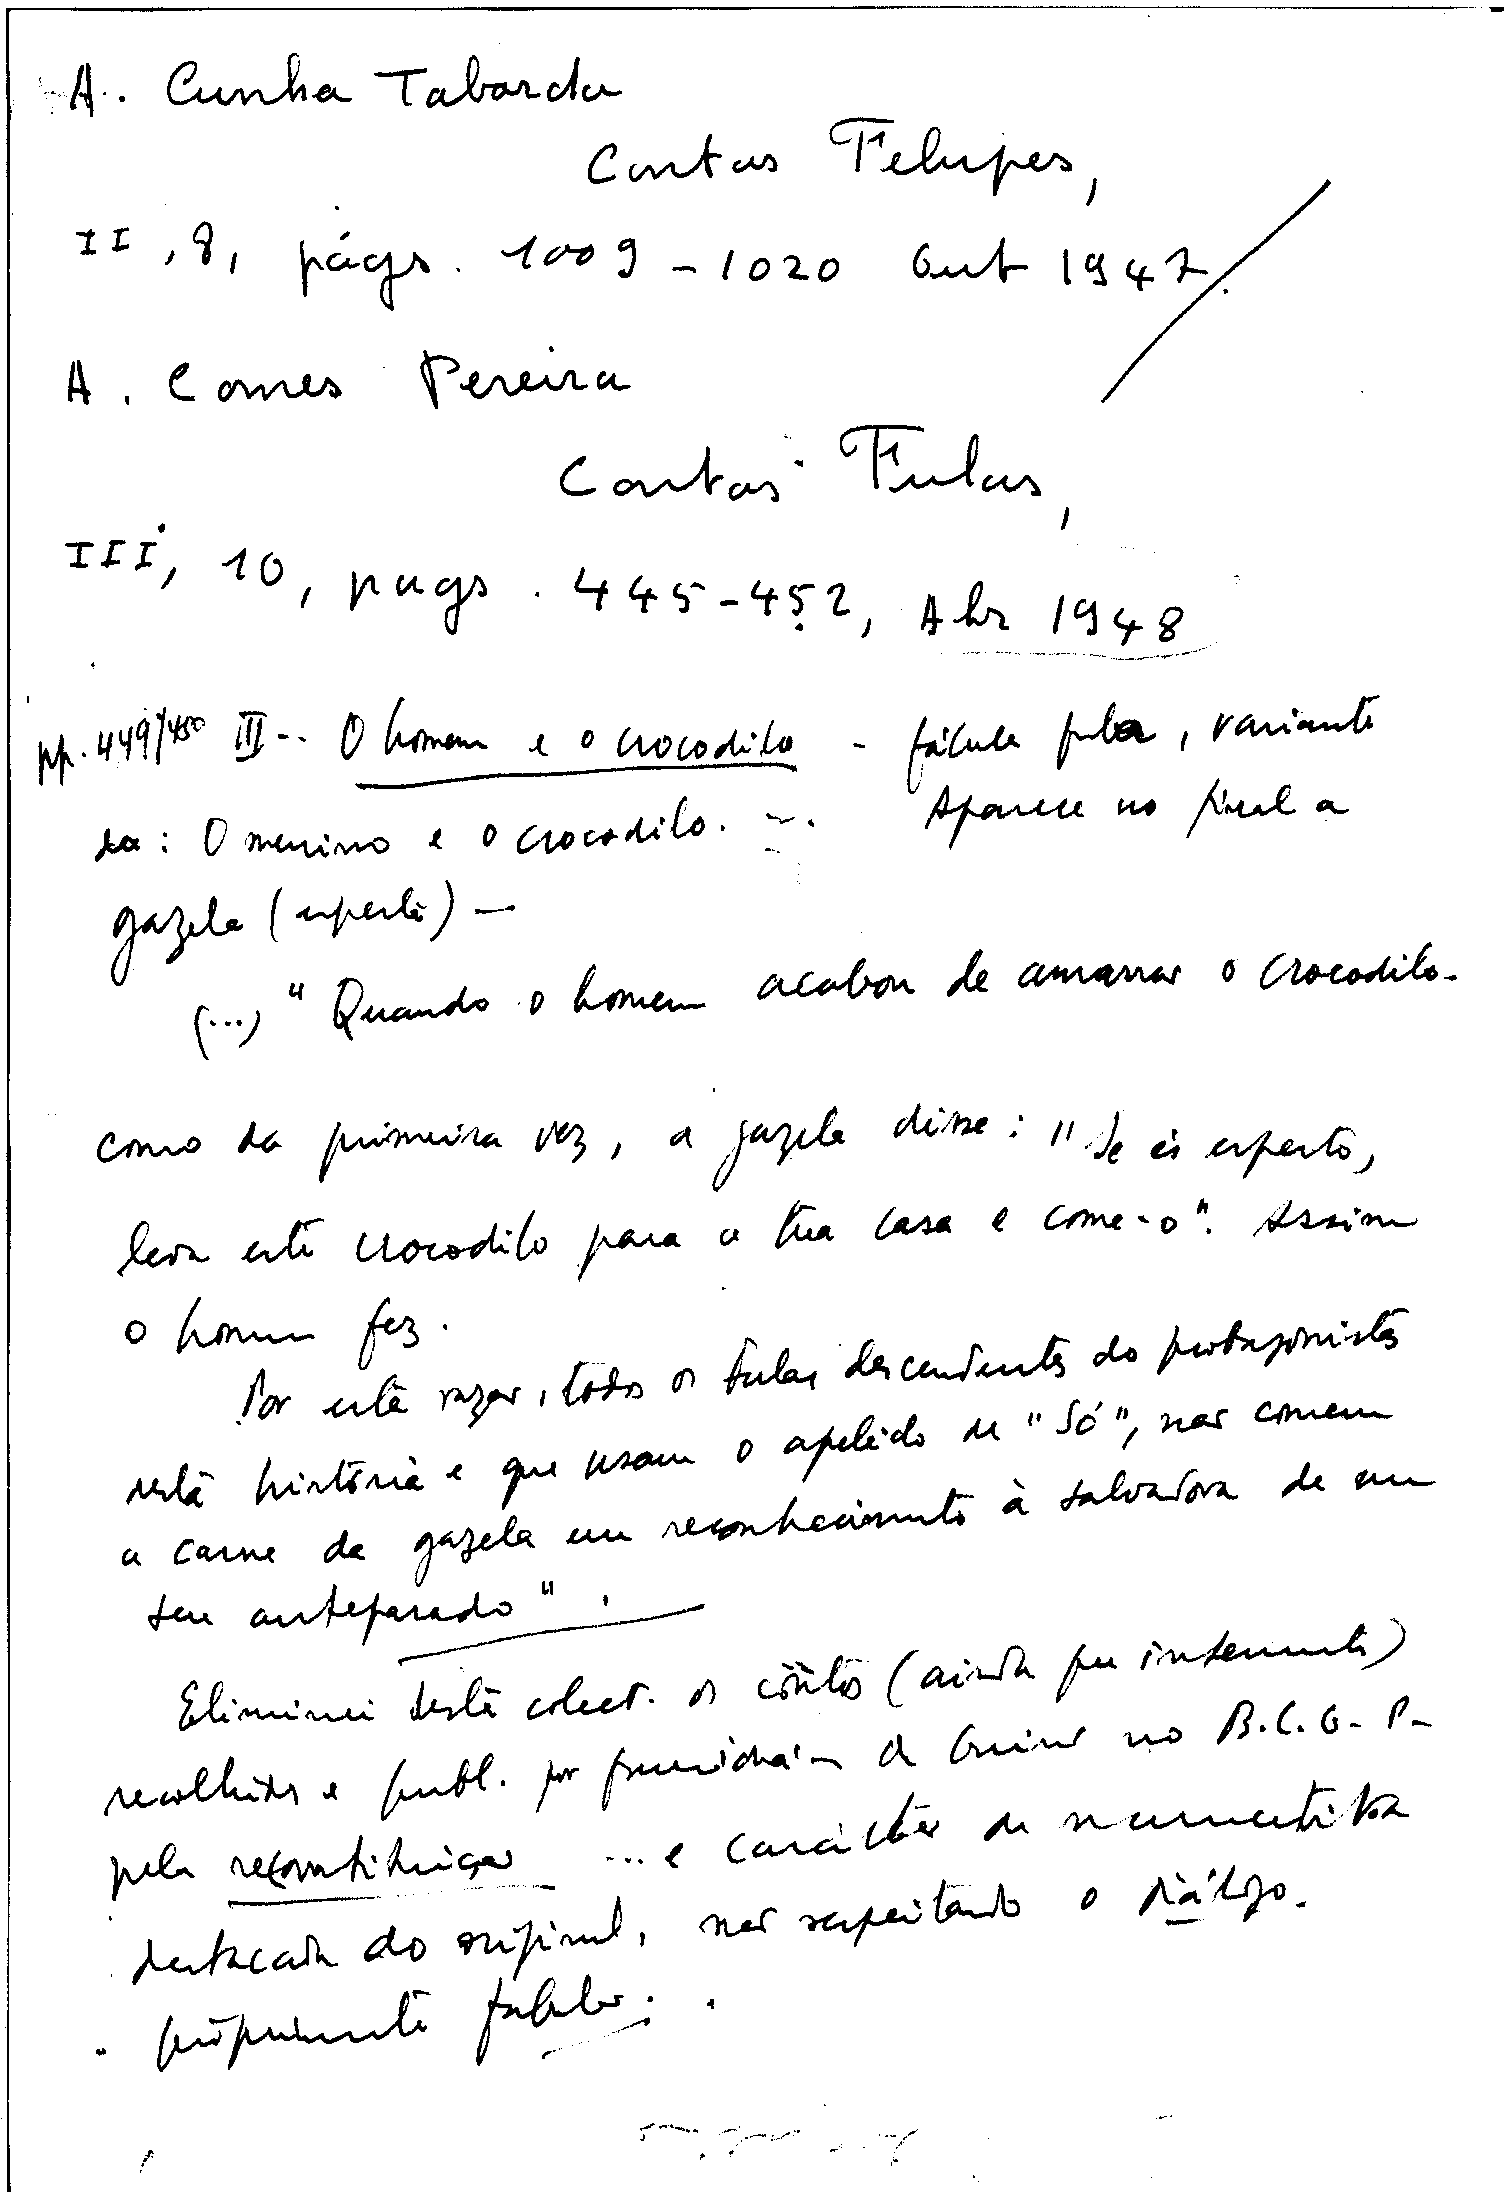 A. Cunha Taborda
Contos Felupes,
II, 8, págs. 1009-1020 Out 1947.
A. Gomes Pereira
Contos Fulas,
III, 10, pags. 445-452, Abr 1948
pp. 449/450 III-- O homem e o crocodilo - fábula fula, variante
da: O menino e o crocodilo. -. Aparece no final a
gazela (esperta) —
(...) "Quando o homem acabou de amarrar o crocodilo-
como da primeira vez, a gazela disse: "Se és esperto,
leva este crocodilo para a tua casa e come-o". Assim
o homem fez.
Por esta razão, todos os fulas descendentes do protagonista
desta história e que usam o apelido de "Só", não comem
a carne da gazela em reconhecimento à salvadora de um
seu antepassado".
Eliminei desta colect. os contos (ainda que
recolhidos e publ. por da Guiné no B.C.G.P.
pela reconstituição ... e carácter de narrativa
destacada do original, não respeitando o diálogo.
propriamente